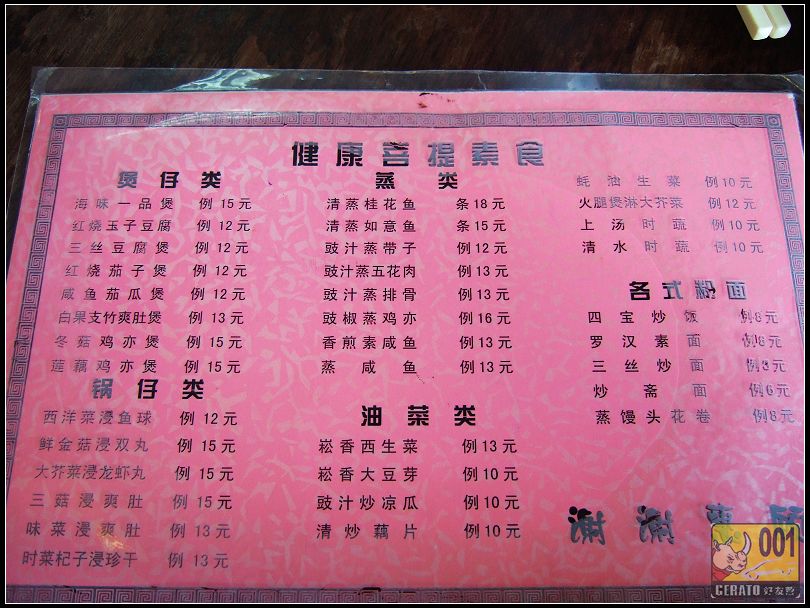 健康菩提素食
煲仔类
海味一品煲 例 15 元
红烧玉子豆腐 例 12 元
三丝豆腐煲 例 12 元
红烧茄子煲 例 12 元
咸鱼茄瓜煲 例 12 元
白果支竹爽肚煲 例 13 元
冬菇鸡亦煲 例 15 元
莲藕鸡亦煲 例 15 元
锅仔类
西洋菜浸鱼球 例 12 元
鲜金菇浸双丸 例 15 元
大芥菜浸龙虾丸 例 15 元
三菇浸爽肚 例 15 元
味菜浸爽肚 例 13 元
时菜杞子浸珍干 例 13 元
蒸类
清蒸桂花鱼 条 18 元
清蒸如意鱼 条 15 元
豉汁蒸带子 例 12 元
豉汁蒸五花肉 例 13 元
豉汁蒸排骨 例 13 元
豉椒蒸鸡亦 例 16 元
香煎素咸鱼 例 13 元
蒸咸鱼 例 13 元
油菜类
崧香西生菜 例 13 元
崧香大豆芽 例 10 元
豉汁炒凉瓜 例 10 元
清炒藕片 例 10 元
蚝油生菜 例 10 元
火腿煲淋大芥菜 例 12 元
上汤时蔬 例 10 元
清水时蔬 例 10 元
各式粉面
四宝炒饭 例 8 元
罗汉素面 例 8 元
三丝炒面 例 8 元
炒斋面 例 6 元
蒸馒头花卷 例 8 元
谢谢惠顾
001
CERATO 好友营